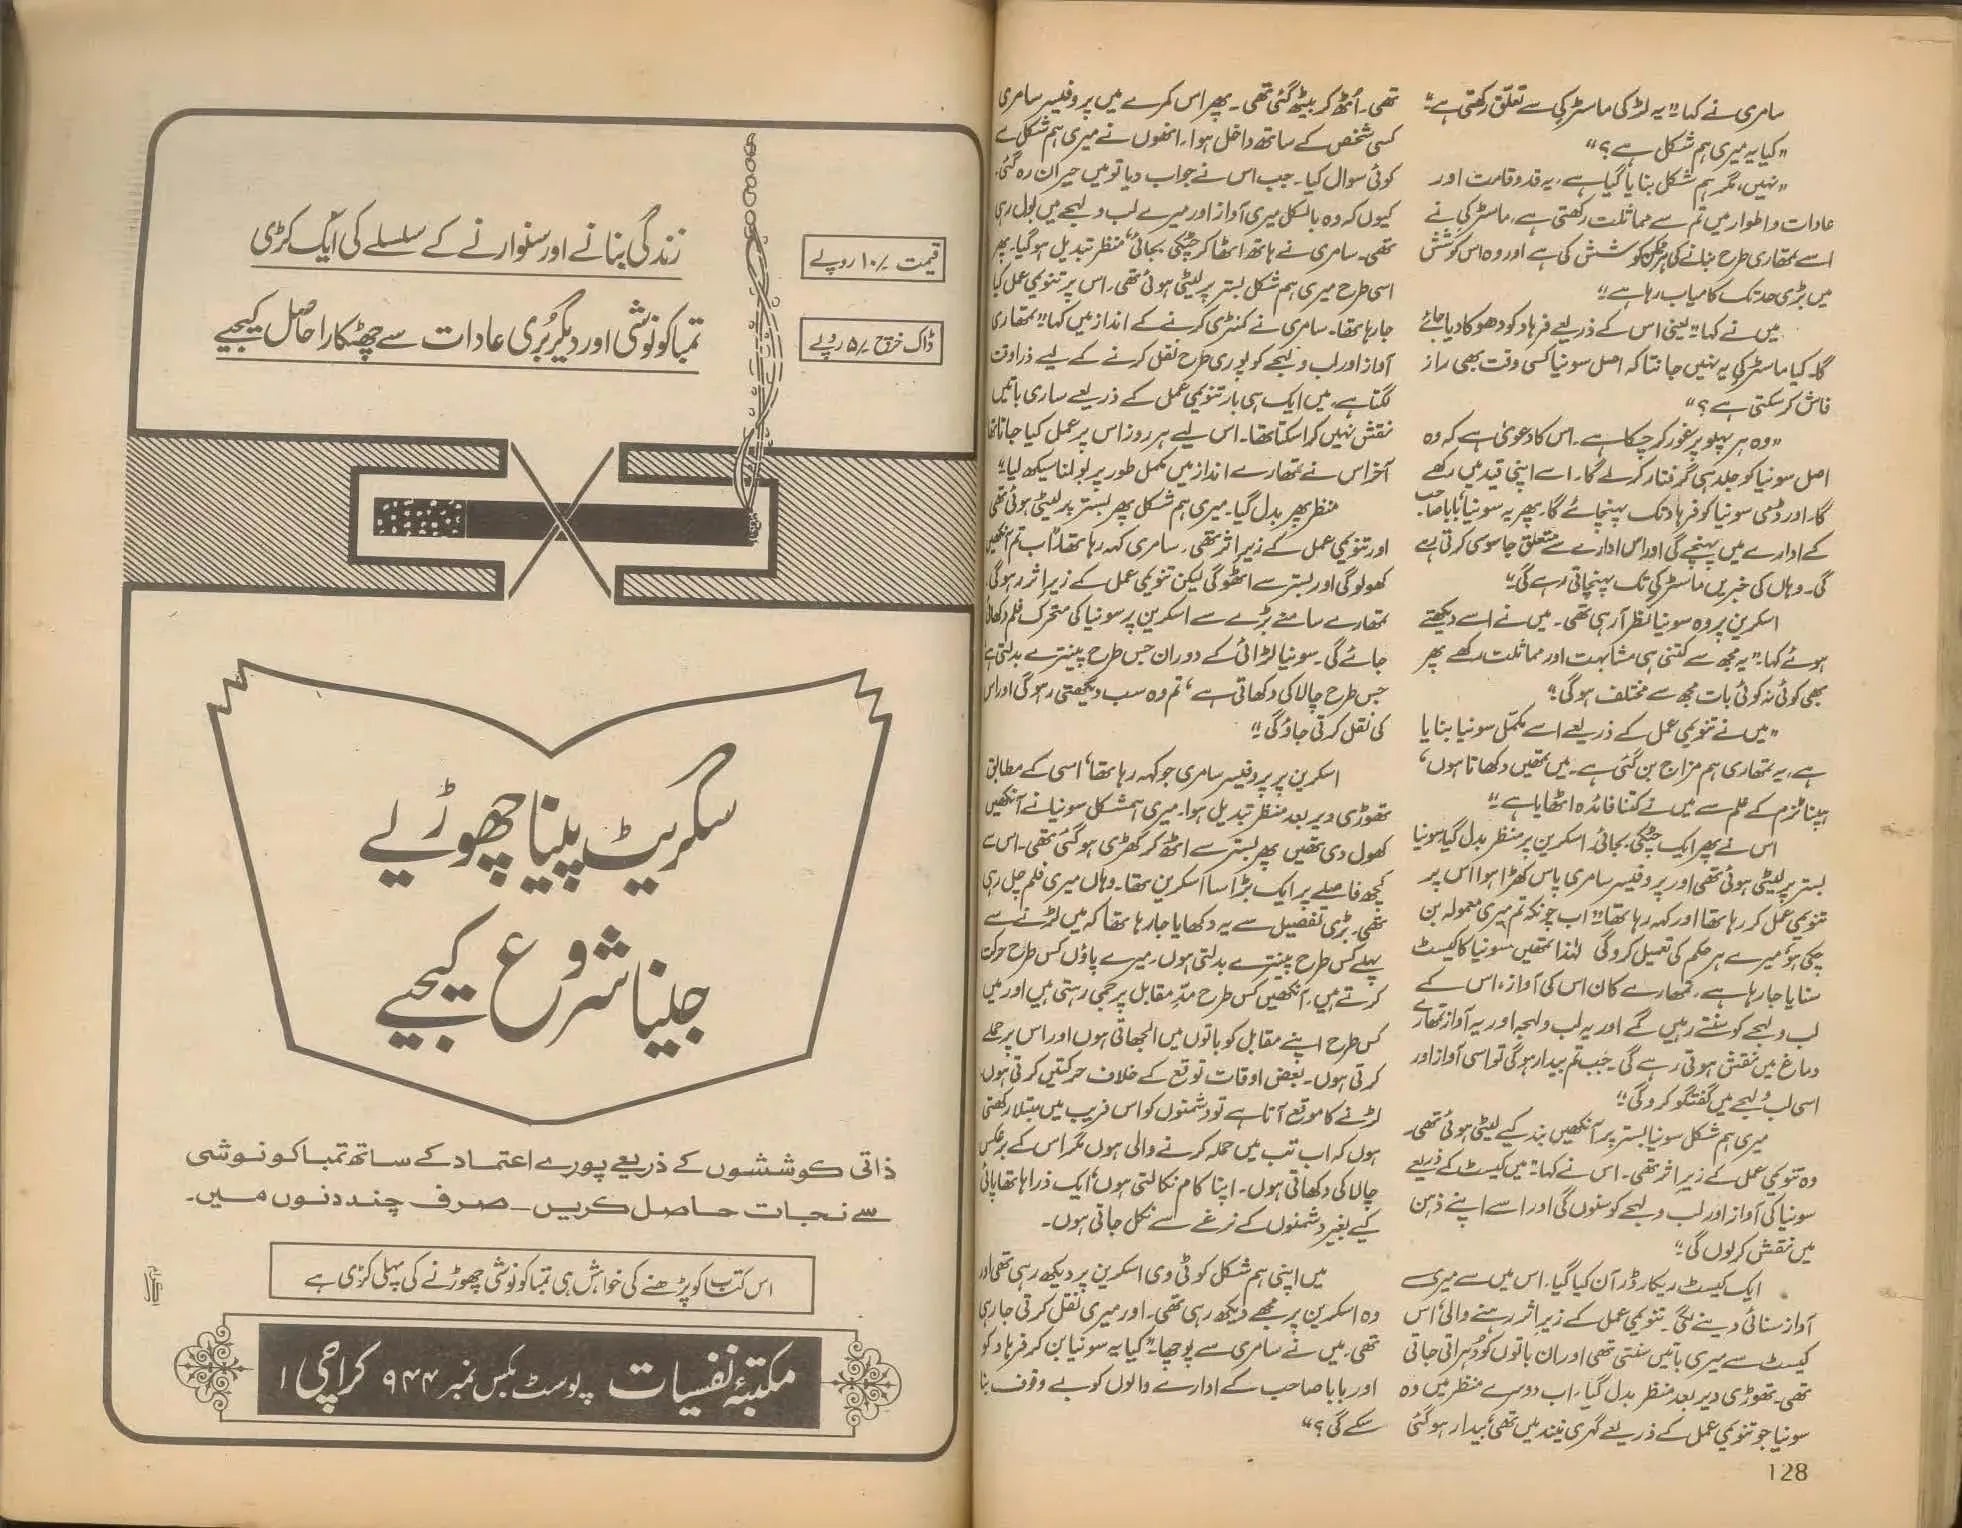 سامری نے کہا "یہ لڑکی ماسٹر کی سے تعلق رکھتی ہے"
"کیا یہ میری ہم شکل ہے؟"
"نہیں، مگر ہم شکل بنایا گیا ہے، یہ قد و قامت اور
عادات و اطوار میں تم سے مماثلت رکھتی ہے، ماسٹر کی نے
اسے تمھاری طرح بنانے کی ہر ممکن کوشش کی ہے اور وہ اس کوشش
میں بڑی حد تک کامیاب رہا ہے"
میں نے کہا "یعنی اس کے ذریعے فرہاد کو دھوکا دیا جائے
گا۔ کیا ماسٹر کی یہ نہیں جانتا کہ اصل سونیا کسی وقت بھی راز
فاش کر سکتی ہے؟"
"وہ ہر پہلو پر غور کر چکا ہے۔ اس کا دعویٰ ہے کہ وہ
اصل سونیا کو جلد ہی گرفتار کر لے گا۔ اسے اپنی قید میں رکھے
گا اور ڈمی سونیا کو فرہاد تک پہنچائے گا۔ پھر یہ سونیا بابا صاحب
کے ادارے میں پہنچے گی اور اس ادارے سے متعلق جاسوسی کرتی رہے
گی۔ وہاں کی خبریں ماسٹر کی تک پہنچاتی رہے گی"
اسکرین پر وہ سونیا نظر آ رہی تھی۔ میں نے اسے دیکھتے
ہوئے کہا۔ "یہ مجھ سے کتنی ہی مشابہت اور مماثلت رکھے پھر
بھی کوئی نہ کوئی بات مجھ سے مختلف ہوگی"
"میں نے تنویمی عمل کے ذریعے اسے مکمل سونیا بنایا
ہے، یہ تمھاری ہم مزاج بن گئی ہے۔ میں تمھیں دکھاتا ہوں،
ہپناٹزم کے علم سے میں نے کتنا فائدہ اٹھایا ہے"
اس نے پھر ایک چٹکی بجائی۔ اسکرین پر منظر بدل گیا۔ سونیا
بستر پر لیٹی ہوئی تھی اور پروفیسر سامری پاس کھڑا ہوا اس پر
تنویمی عمل کر رہا تھا اور کہہ رہا تھا "اب چونکہ تم میری معمولہ بن
چکی ہو، میرے ہر حکم کی تعمیل کرو گی لہٰذا تمھیں سونیا کا کیسٹ
سنایا جا رہا ہے، تمھارے کان اس کی آواز، اس کے
لب و لہجے کو سنتے رہیں گے اور یہ لب و لہجہ اور یہ آواز تمھارے
دماغ میں نقش ہوتی رہے گی۔ جب تم بیدار ہوگی تو اسی آواز اور
اسی لب و لہجے میں گفتگو کرو گی"
میری ہم شکل سونیا بستر پر آنکھیں بند کیے لیٹی ہوئی تھی۔
وہ تنویمی عمل کے زیر اثر تھی۔ اس نے کہا "میں کیسٹ کے ذریعے
سونیا کی آواز اور لب و لہجے کو سنوں گی اور اسے اپنے ذہن
میں نقش کر لوں گی"
ایک کیسٹ ریکارڈر آن کیا گیا۔ اس میں سے میری
آواز سنائی دینے لگی۔ تنویمی عمل کے زیرِ اثر رہنے والی اس
کیسٹ سے میری باتیں سنتی تھی اور ان باتوں کو دُہراتی جاتی
تھی۔ تھوڑی دیر بعد منظر بدل گیا۔ اب دوسرے منظر میں وہ
سونیا جو تنویمی عمل کے ذریعے گہری نیند میں تھی، بیدار ہو گئی
128
تھی۔ اُٹھ کر بیٹھ گئی تھی۔ پھر اس کمرے میں پروفیسر سامری
کسی شخص کے ساتھ داخل ہوا۔ انھوں نے میری ہم شکل سے
کوئی سوال کیا۔ جب اس نے جواب دیا تو میں حیران رہ گئی،
کیوں کہ وہ بالکل میری آواز اور میرے لب و لہجے میں بول رہی
تھی۔ سامری نے ہاتھ اٹھا کر چٹکی بجائی، منظر تبدیل ہو گیا۔ پھر
اسی طرح میری ہم شکل بستر پر لیٹی ہوئی تھی۔ اس پر تنویمی عمل کیا
جا رہا تھا۔ سامری نے کمنٹری کرنے کے انداز میں کہا "تمھاری
آواز اور لب و لہجے کو پوری طرح نقل کرنے کے لیے ذرا وقت
لگتا ہے، میں ایک ہی بار تنویمی عمل کے ذریعے ساری باتیں
نقش نہیں کرا سکتا تھا۔ اس لیے ہر روز اس پر عمل کیا جاتا تھا
آخر اس نے تمھارے انداز میں مکمل طور پر بولنا سیکھ لیا"
منظر پھر بدل گیا۔ میری ہم شکل پھر بستر پر لیٹی ہوئی تھی
اور تنویمی عمل کے زیرِ اثر تھی۔ سامری کہہ رہا تھا "اب تم آنکھیں
کھولو گی اور بستر سے اٹھو گی لیکن تنویمی عمل کے زیرِ اثر رہو گی،
تمھارے سامنے بڑے سے اسکرین پر سونیا کی متحرک فلم دکھائی
جائے گی۔ سونیا لڑائی کے دوران جس طرح پینترے بدلتی ہے
جس طرح چالاکی دکھاتی ہے، تم وہ سب دیکھتی رہو گی اور اس
کی نقل کرتی جاؤ گی"
اسکرین پر پروفیسر سامری جو کہہ رہا تھا، اسی کے مطابق
تھوڑی دیر بعد منظر تبدیل ہوا۔ میری ہمشکل سونیا نے آنکھیں
کھول دی تھیں پھر بستر سے اٹھ کر کھڑی ہو گئی تھی۔ اس سے
کچھ فاصلے پر ایک بڑا سا اسکرین تھا۔ وہاں میری فلم چل رہی
تھی۔ بڑی تفصیل سے یہ دکھایا جا رہا تھا کہ میں لڑنے سے
پہلے کس طرح پینترے بدلتی ہوں، میرے پاؤں کس طرح حرکت
کرتے ہیں، آنکھیں کس طرح مدِّ مقابل پر جمی رہتی ہیں اور میں
کس طرح اپنے مقابل کو باتوں میں الجھاتی ہوں اور اس پر حملے
کرتی ہوں۔ بعض اوقات توقع کے خلاف حرکتیں کرتی ہوں،
لڑنے کا موقع آتا ہے تو دشمنوں کو اس فریب میں مبتلا رکھتی
ہوں کہ اب تب میں حملہ کرنے والی ہوں مگر اس کے برعکس
چالاکی دکھاتی ہوں۔ اپنا کام نکالتی ہوں، ایک ذرا ہاتھا پائی
کیے بغیر دشمنوں کے نرغے سے نکل جاتی ہوں۔
میں اپنی ہم شکل کو ٹی وی اسکرین پر دیکھ رہی تھی اور
وہ اسکرین پر مجھے دیکھ رہی تھی۔ اور میری نقل کرتی جا رہی
تھی۔ میں نے سامری سے پوچھا "کیا یہ سونیا بن کر فرہاد کو
اور بابا صاحب کے ادارے والوں کو بے وقوف بنا
سکے گی؟"
زندگی بنانے اور سنوارنے کے سلسلے کی ایک کڑی
تمباکو نوشی اور دیگر بُری عادات سے چھٹکارا حاصل کیجیے
قیمت ۱۰/- روپے
ڈاک خرچ ۵/- روپے
سگریٹ پینا چھوڑیے
جینا شروع کیجیے
ذاتی کوششوں کے ذریعے پورے اعتماد کے ساتھ تمباکو نوشی
سے نجات حاصل کریں۔ صرف چند دنوں میں۔
اس کتاب کو پڑھنے کی خواہش ہی تمباکو نوشی چھوڑنے کی پہلی کڑی ہے
مکتبۂ نفسیات پوسٹ بکس نمبر ۹۴۴ کراچی ۱